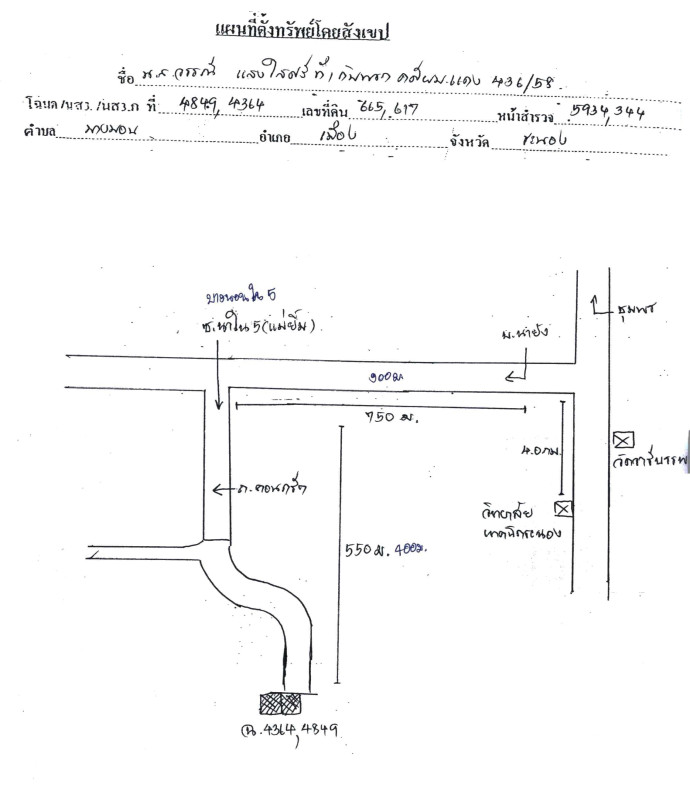 แผนที่ตั้งทรัพย์โดยสังเขป
ชื่อ น.ส.วรรณี แสงใสศรี ที่ 1 คดีผบ.แดง 436/58
โฉนด/นส3./นส3.ก ที่ 4849, 4364 เลขที่ดิน 665, 617 หน้าสำรวจ 5934, 344
ตำบล บางนอน อำเภอ เมือง จังหวัด ระนอง
บางนอนใน 5
ซ.นาใน 5 (แม่ยิ้ม)
ชุมพร
900 ม.
750 ม.
4.0 กม.
วัดวารีบรรพต
ถ.คอนกรีต
วิทยาลัย
เทคนิคระนอง
550 ม. 400ม.
ฉ.4364, 4849